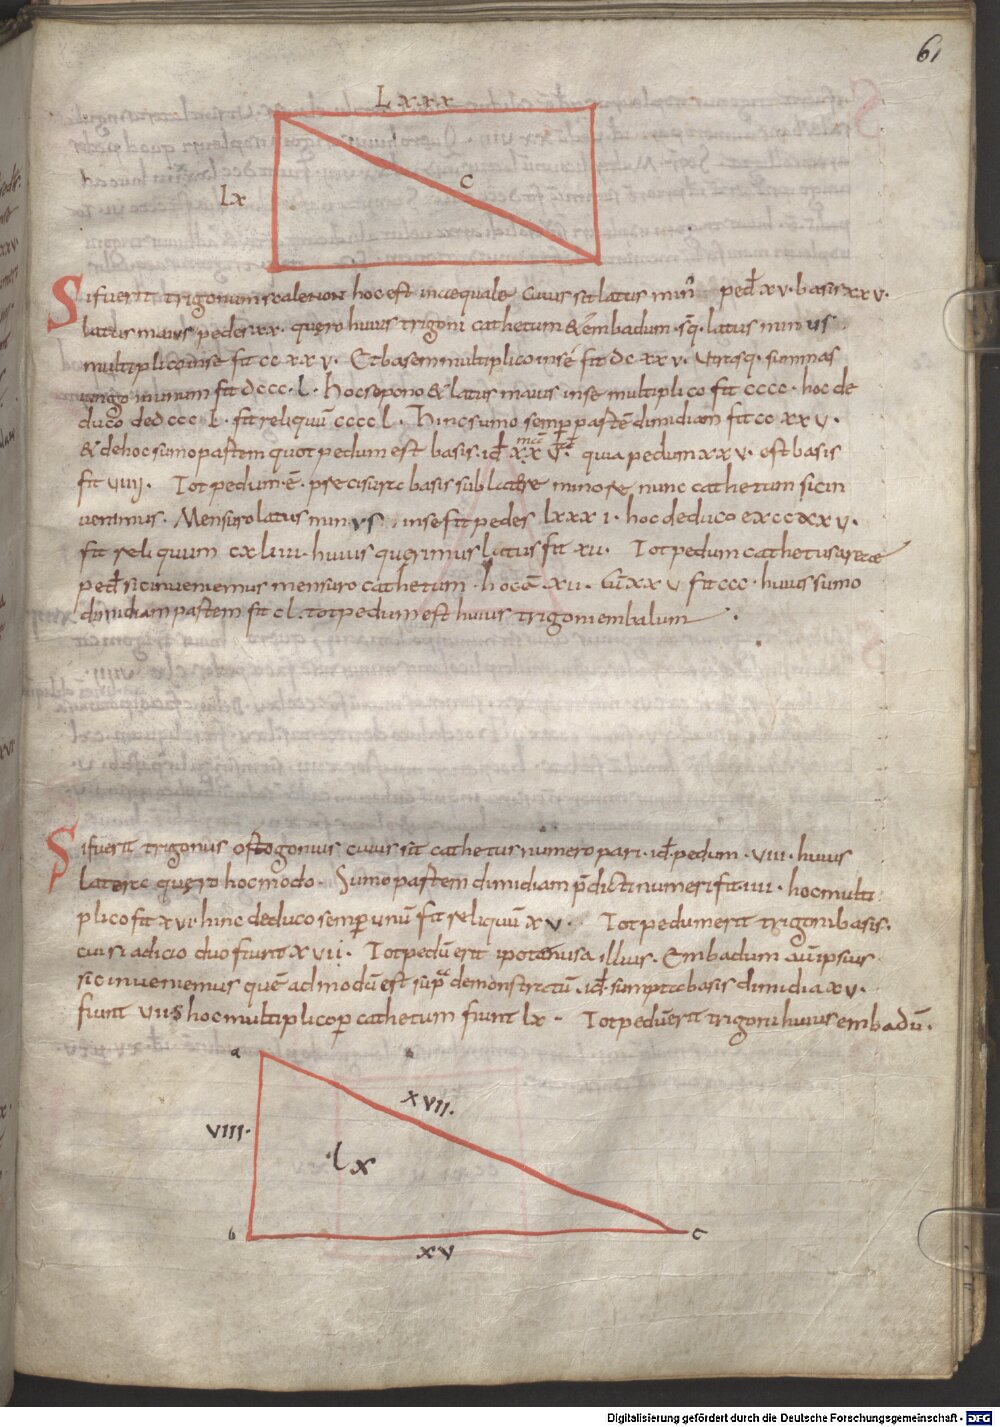 61
Lxxx
Lx
C
Si fuerit trigonum scalenon hoc est inaequale cuius sit latus min̄ ped xv. basis xxv.
latus maius pedes xx. quero huius trigoni cathetum & embadum. sq. latus minus
multiplico in se fit ccxxv. Et basem multiplico in se fit dcxxv. Utrasq. summas
iungo in unum fit dccc.l. Hoc sepono & latus maius in se multiplico fit cccc. hoc de
duco de dccc l. fit reliquū cccc l. Hinc sumo semp partē dimidiam fit ccxxv.
& de hoc sumo partem quot pedum est basis. id xxv. quia pedum xxv. est basis
fit viiii. Tot pedum ē. praecisura basis sub latere minore nunc cathetum sic in
venimus. Mensuro latus minus. in se fit pedes lxxxi. hoc deduco ex ccxxv.
fit reliquum cxliiii. huius querimus latus fit xii. Tot pedum cathetus areae
ped sic inveniemus mensuro cathetum. hoc ē xii. xxv fit ccc. huius sumo
dimidiam partem fit cl. tot pedum est huius trigoni embalum.
Si fuerit trigonus ortogonius cuius sit cathetus numero pari. id. pedum. viii. huius
latera quero hoc modo. Sumo partem dimidiam p̄dicti numeri fit iiii. hoc multi
plico fit xvi. hinc deduco semp unū fit reliquū xv. Tot pedum erit trigoni basis.
cui si adicio duo fiunt xvii. Tot pedū erit ipotenusa illius. Embadum aū ipsius
sic inveniemus quē ad modū est supra demonstratū. id. sumpta basis dimidia xv.
fiunt viis hoc multiplico p cathetum fiunt lx. Tot pedū erit trigoni huius embadū.
a
xvii.
viii.
lx
b
c
xv
Digitalisierung gefördert durch die Deutsche Forschungsgemeinschaft - DFG